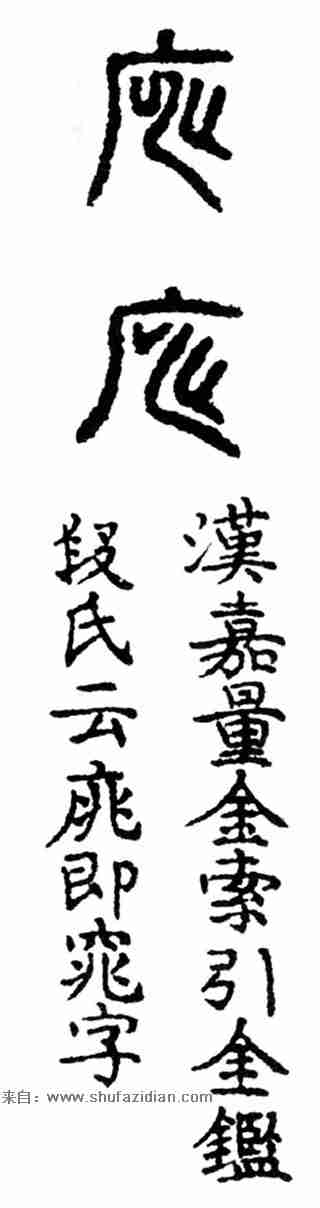 庣
庣
漢嘉量金索引金鑑
段氏云庣即窕字
来自：www.shufazidian.com